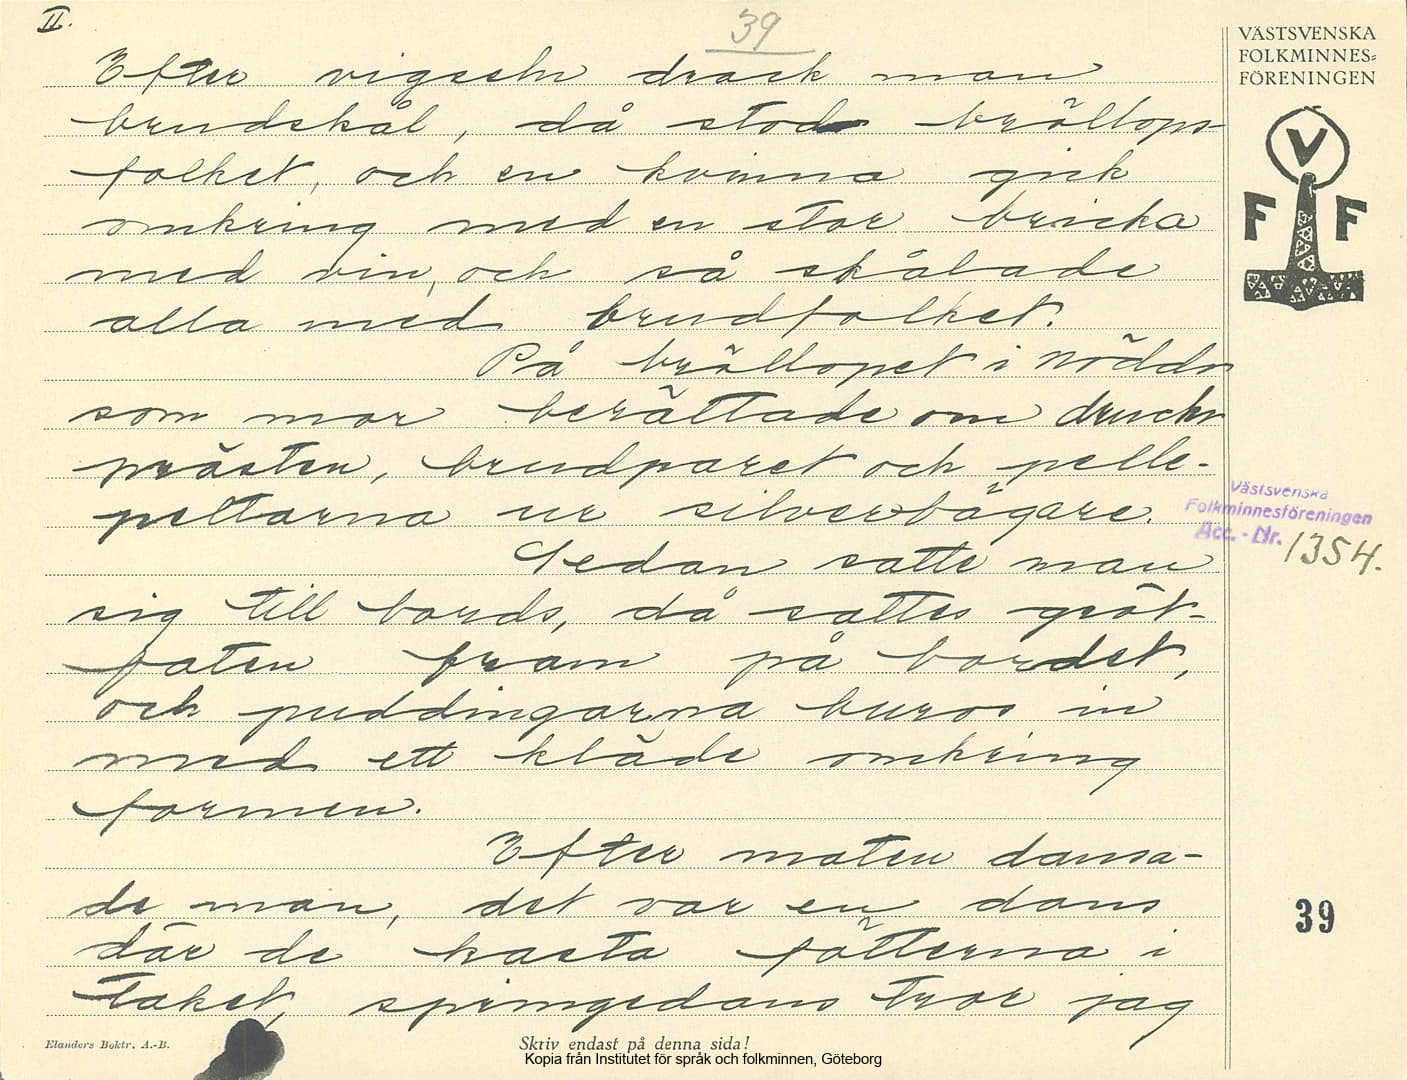 II.
39
Efter vigseln drack man
brudskål, då stod bröllops
folket, och en kvinna gick
omkring med en stor bricka
med vin, och så skålade
alla med brudfolket.
På bröllopet i
som mor berättade om druckn
prästen, brudparet och pelle-
pellarna ur silverbägare.
Sedan satte man
sig till bords, då sattes gröt-
faten fram på bordet,
och puddingarna buros in
med ett kläde omkring
formen.
Efter maten dansa-
de man, det var en dans
där de kasta fötterna i
taket, springedans tror jag
VÄSTSVENSKA
FOLKMINNES=
FÖRENINGEN
V
F F
Västsvenska
Folkminnesföreningen
Acc. - Nr. 1354.
39
Elanders Boktr. A.-B.
Skriv endast på denna sida!
Kopia från Institutet för språk och folkminnen, Göteborg